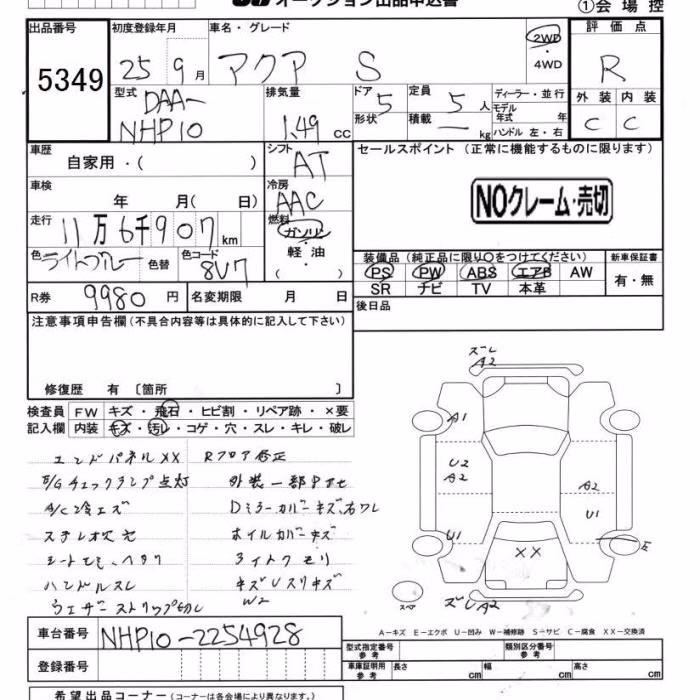 オークション出品申込書
①会場控
出品番号 5349
初度登録年月 25 9月
車名・グレード アクア S
2WD ・ 4WD
評価点 R
外装 C 内装 C
型式 DAA- NHP10
排気量 1.49 cc
ドア 5 形状
定員 5人 積載 ― kg
ディーラー・並行
モデル年式 年
ハンドル 左・右
車歴 自家用・( )
シフト AT
セールスポイント (正常に機能するものに限ります)
NOクレーム・売切
車検 年 月( 日)
冷房 AAC
走行 11万6千907km
燃料 ガソリン・軽油・( )
色 ライトブルー 色替 色コード 8V7
装備品 (純正品に限り○をつけてください)
PS PW ABS エアB AW
SR ナビ TV 本革
新車保証書 有・無
R券 9980円
名変期限 月 日
後日品
注意事項申告欄 (不具合内容等は具体的に記入して下さい)
修復歴 有 〔箇所 〕
検査員記入欄
FW キズ・飛石・ヒビ割・リペア跡・×要
内装 キズ・汚レ・コゲ・穴・スレ・キレ・破レ
エンドパネルXX Rフロア修正
E/Gチェックランプ点灯 外装一部
A/C冷エズ Dミラーカバーキズ、右ワレ
ステレオ欠 ホイルカバーキズ
ハンドルスレ キズUスリキズ
ウェザーストリップ切レ W2
ズレ
A2
A1
U2
A2
A2
U1
U1
XX
E
スペア
ズレA2
A-キズ E-エクボ U-凹み W-補修跡 S-サビ C-腐食 XX-交換済
車台番号 NHP10-2254928
登録番号
型式指定番号 参考
類別区分番号 参考
車庫証明用 参考 長さ cm 幅 cm 高さ cm
希望出品コーナー (コーナーは各会場により異なります。)